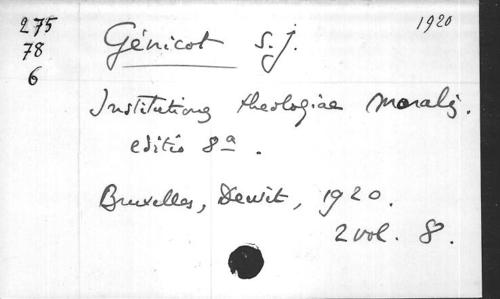 275
78
6
1920
Génicot S.J.
Institutiones theologiae moralis.
editio 8a.
Bruxelles, Dewit, 1920.
2 vol. 8.